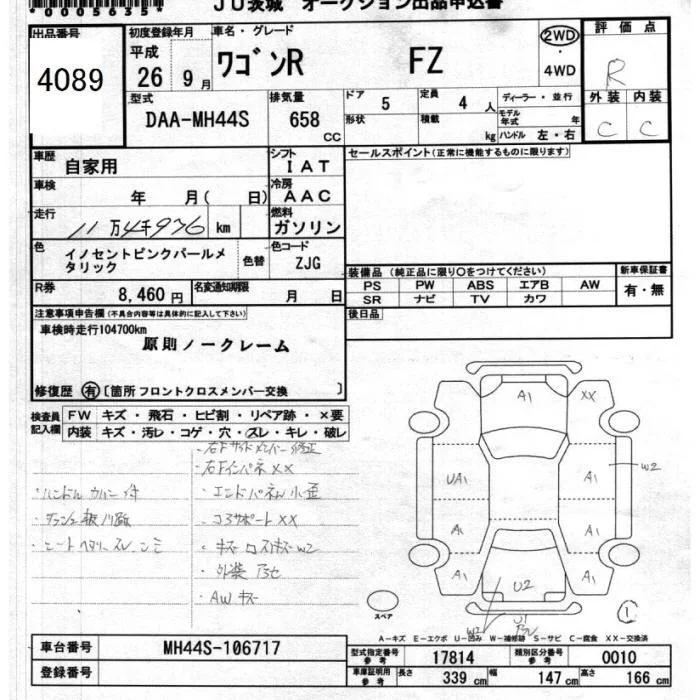 *0005635*
JU茨城 オークション出品申込書
出品番号
4089
初度登録年月
平成
26年9月
車名・グレード
ワゴンR FZ
2WD
・
4WD
評価点
R
外装 内装
C C
型式
DAA-MH44S
排気量
658
CC
ドア 5
定員 4 人
形状
積載 kg
ディーラー・並行
モデル年式 年
ハンドル 左・右
車歴
自家用
シフト
IAT
セールスポイント(正常に機能するものに限ります)
車検
年 月( 日)
冷房
AAC
走行
11万4千976 km
燃料
ガソリン
色
イノセントピンクパールメタリック
色替
色コード
ZJG
装備品(純正品に限り○をつけてください)
新車保証書
PS PW ABS エアB AW
SR ナビ TV カワ
有・無
R券
8,460円
名変通知期限
月 日
後日品
注意事項申告欄(不具合内容等は具体的に記入して下さい)
車検時走行104700km
原則ノークレーム
修復歴 有 [箇所 フロントクロスメンバー交換 ]
検査員記入欄
FW キズ・飛石・ヒビ割・リペア跡・×要
内装 キズ・汚レ・コゲ・穴・スレ・キレ・破レ
・右Fサイドメンバー修正
・右Fインパネ××
・ハンドルカバー付
・エンドパネル小歪
・コアサポート××
・シートヘタリ スレ シミ
・AWキズ
A1 XX
UA1 A1 W2
A1 A1
A1 A1
U2
W2
U1
スペア
1
A-キズ E-エクボ U-凹み W-補修跡 S-サビ C-腐食 XX-交換済
車台番号
MH44S-106717
登録番号
型式指定番号 参考
17814
類別区分番号 参考
0010
車庫証明用 参考
長さ 339 cm
幅 147 cm
高さ 166 cm